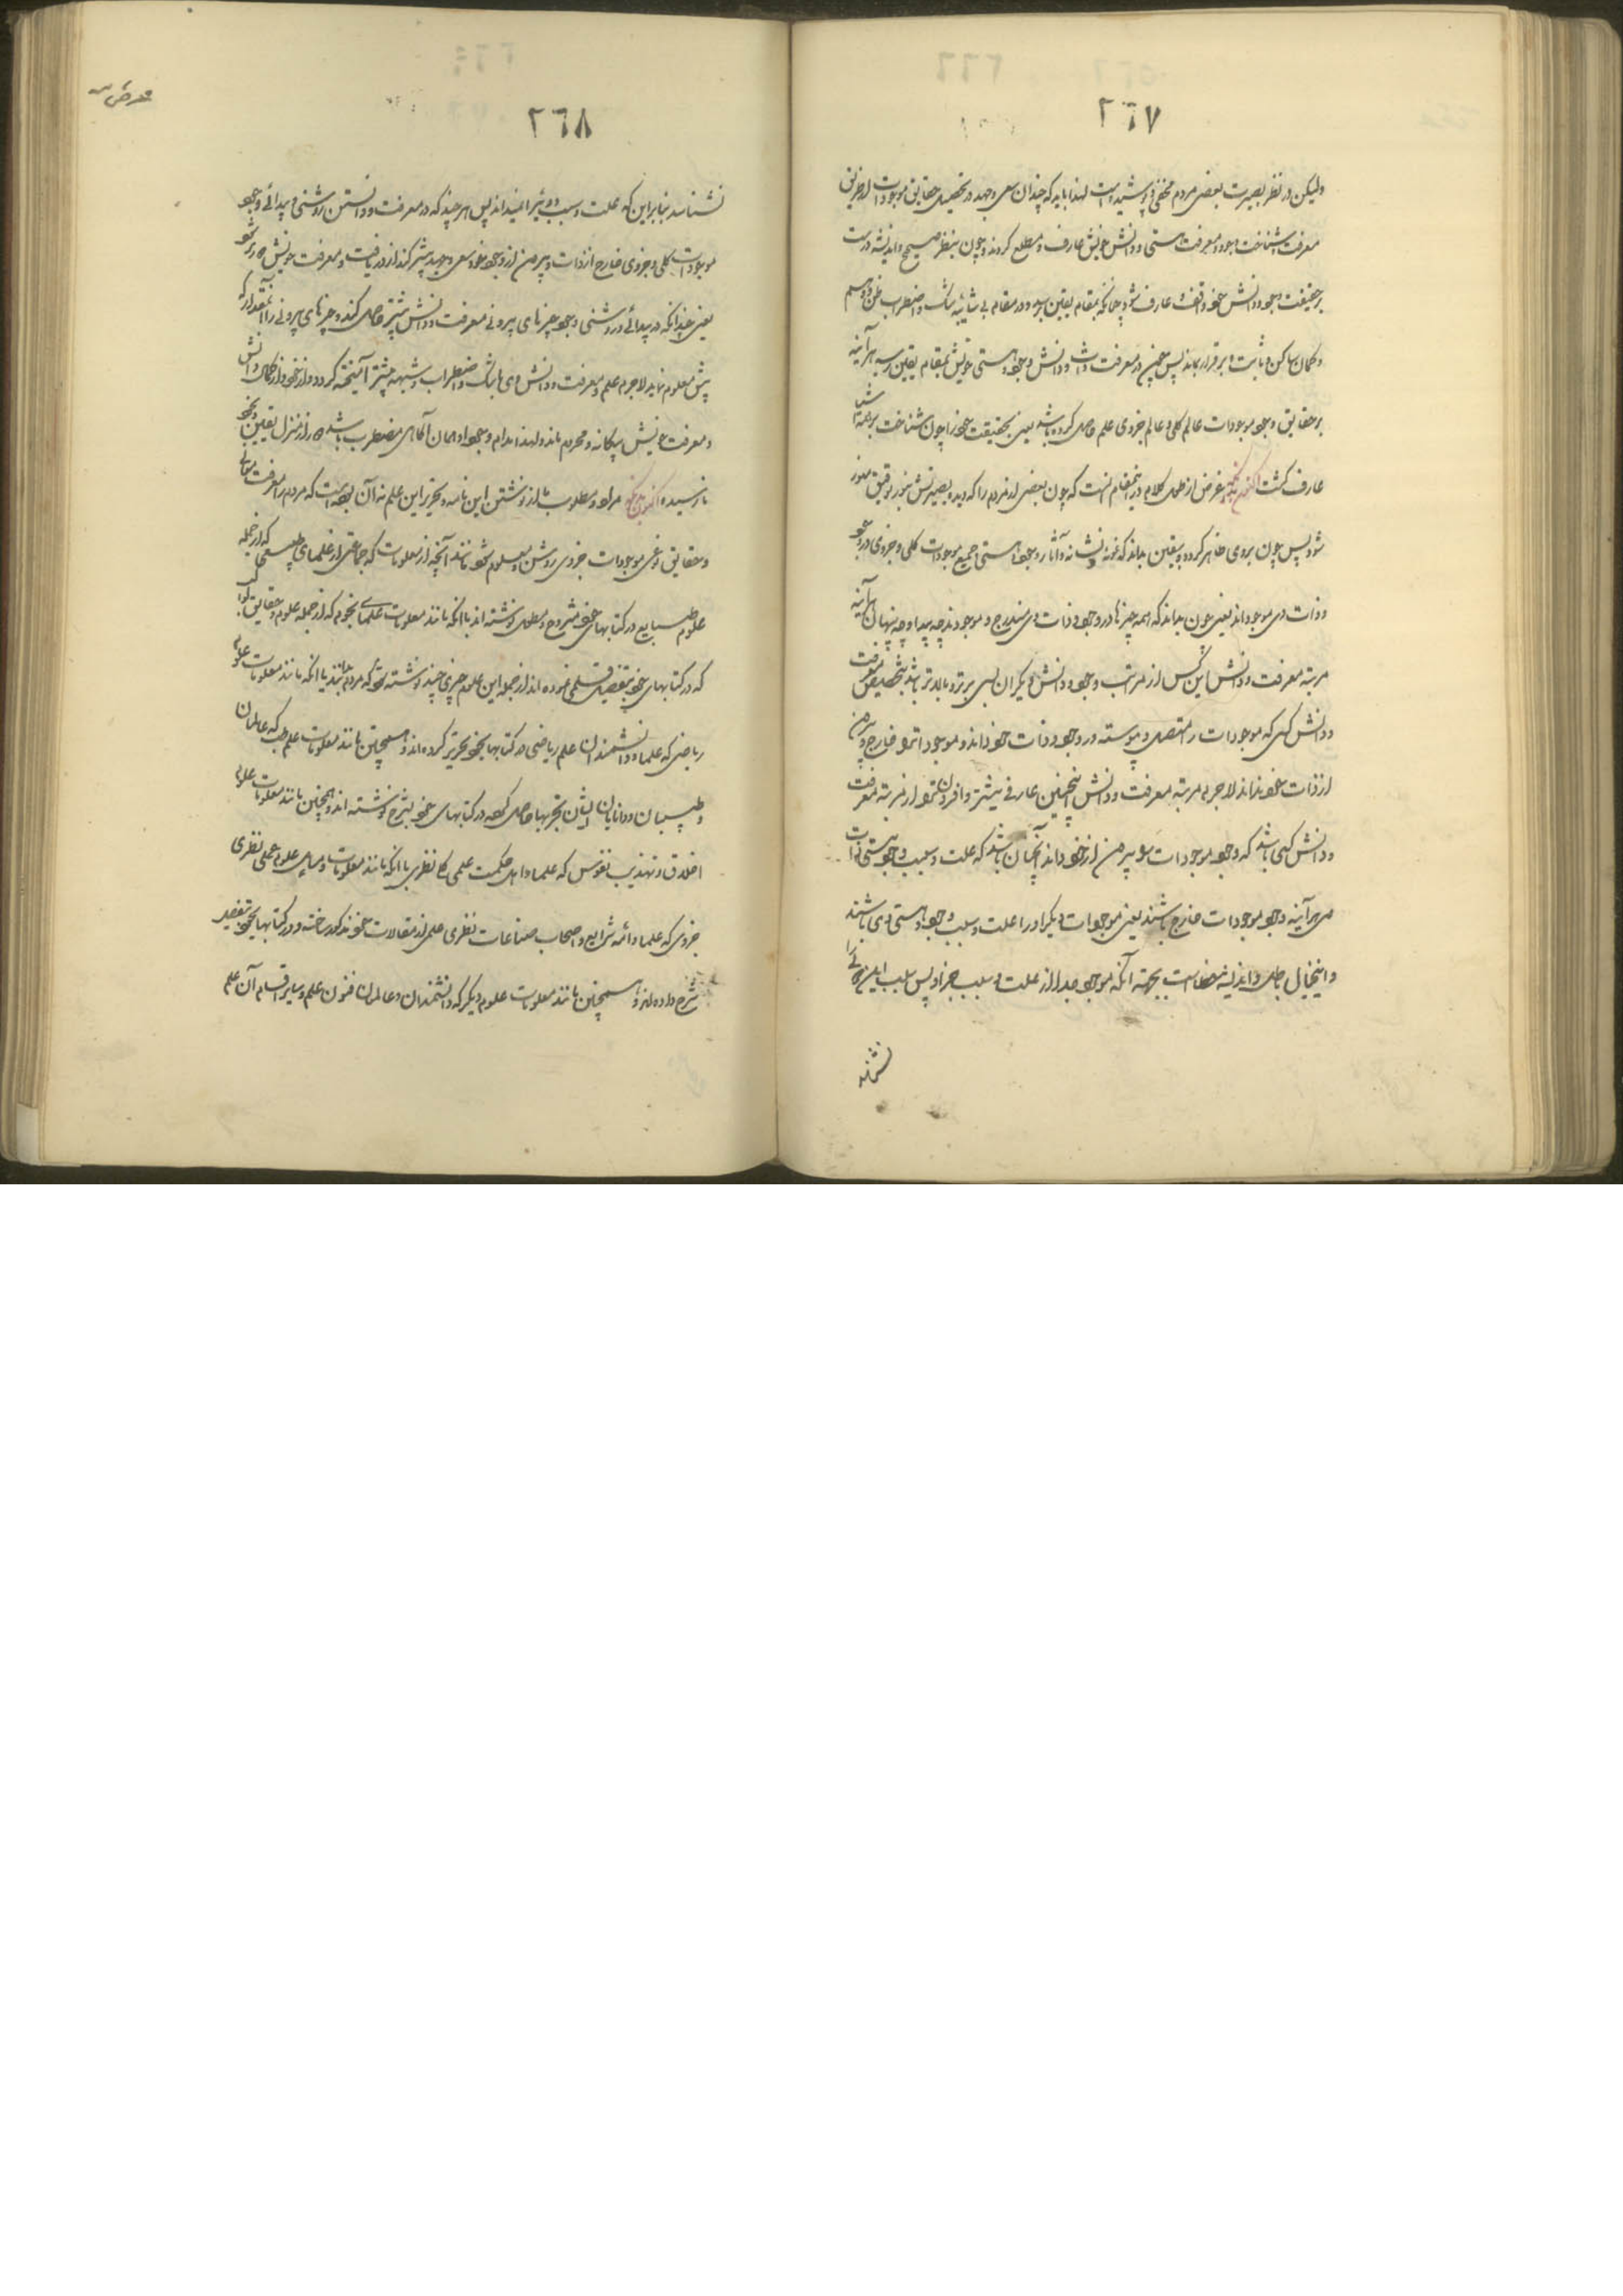 ٢٦٧
ولیکن در نظر بصیرت بعضی مردم مخفی و پوشیده است لهذا باید که چندان سعی و جهد در تحصیل حقایق موجودات از طریق
معرفت شناخت وجود و معرفت هستی و دانش خویش عارف و مطلع کردند و چون بنظر صحیح و اندیشه درست
بر حقیقت وجود و دانش خود واقف و عارف شود چنانکه بمقام یقین رسد و در مقام بی شائبه شک و اضطراب ظن و وهم
و گمان ساکن و ثابت و برقرار بماند پس چنین در معرفت ذات و دانش وجود و هستی خویش بمقام یقین رسد هر آینه
بر حقایق وجود موجودات عالم کلی و عالم جزوی علم حاصل کرده باشد یعنی بحقیقت خود را چون شناخت بر همه اشیا
عارف کشت غرض از طول کلام در اینمقام آنست که چون بعضی از مردم را که دیده بصیرتش بنور توفیق منور
شود پس چون بر وی ظاهر کردد و بیقین بداند که نمونه و نشانه و آثار وجود و هستی جمیع موجودات کلی و جزوی در وجود
و ذات وی موجود اند یعنی چون بداند که همه چیزها در وجود و ذات وی مندرج و موجودند چه پیدا و چه پنهان هر آینه
مرتبه معرفت و دانش این کس از مراتب وجود و دانش دیگران بسی برتر و بالاتر باشد بتخصیص معرفت
و دانش کسی که موجودات را متصل و پیوسته در وجود و ذات خود داند و موجودات را خارج و بیرون
از ذات خود نداند لاجرم مرتبه معرفت و دانش اینچنین عارفی بیشتر و افزونتر از مرتبه معرفت
و دانش کسی باشد که وجود موجودات را بیرون از خود داند آنچنان باشد که علت و سبب وجود و هستی ذات
هر آینه وجود موجودات خارج باشند یعنی موجودات دیگر او را علت و سبب وجود و هستی وی باشند
و اینخیال باطل و اندیشه خطاست بجهته آنکه موجود جدا از علت و سبب جز او پس سبب این را
نشناسد
٢٦٨
نشناسد بنابراین که علت و سبب وی غیر را میداند پس هر چند که در معرفت و دانستن روشنی و پیدائی وجود
موجودات کلی و جزوی خارج از ذات و بیرون از وجود خود سعی و جهد بیشتر کند از دریافت و معرفت خویش دورتر شود
یعنی چندانکه در پیدائی و روشنی وجود چیزهای بیرونی معرفت و دانش بیشتر حاصل کند و چیزهای بیرونی را آنقدر که
بیش معلوم نماید لاجرم علم و معرفت و دانش وی با شک و اضطراب و شبهه بیشتر آمیخته کردد و از خود و از کمال دانش
و معرفت خویش بیگانه و محروم ماند و لهذا مدام وجود او همان آگاهی مضطرب باشد و از منزل یقین بخود
نارسیده مراد و مطلوب ما از نوشتن این نامه و تحریر این علم نه آن بوده است که مردم را معرفت معانی
و حقایق نوعی موجودات جزوی روشن و معلوم شود مانند آنچه از معلومات که جماعتی از علمای طبیعی که از جمله
علوم طبایع در کتابهای خود مشروح و مطول نوشته اند یا آنکه مانند معلومات علمای نجوم که از جمله علوم و حقایق کواکب
که در کتابهای خود بتفصیل قلمی نموده اند از جمله این علوم چیزی چند نوشته شود که مردم بدانند یا آنکه مانند معلومات علوم
ریاضی که علما و دانشمندان علم ریاضی در کتابهای خود تحریر کرده اند و همچنین مانند معلومات علم طب که عالمان
و طبیبان و دانایان ایشان بتجربها حاصل کرده در کتابهای خود بشرح نوشته اند و همچنین مانند معلومات علوم
اخلاق و تهذیب نفوس که علما و اهل حکمت عملی کا نظری یا آنکه مانند معلومات و مسایل علوم عملی نظری
جزوی که علما و ائمه شرایع و اصحاب صناعات نظری عملی از مقالات خود مذکور ساخته و در کتابهای خود بتفصیل
شرح داده اند و همچنین مانند معلومات علوم دیگر که دانشمندان و عالمان فنون علم و سایر اقسام آن علم